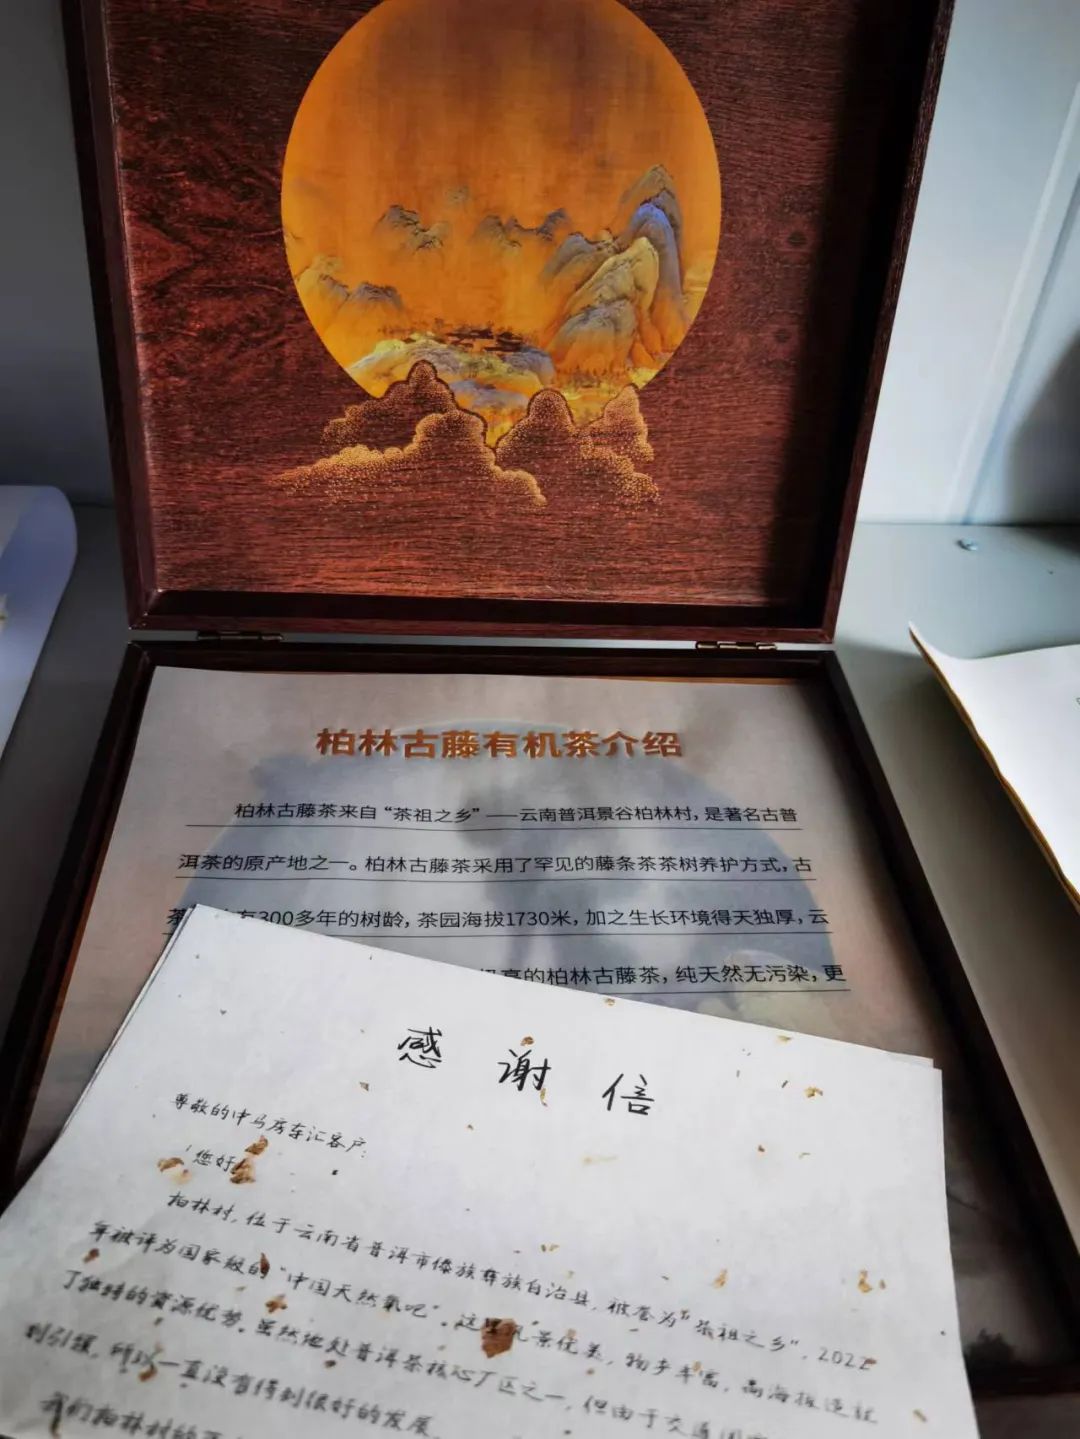 柏林古藤有机茶介绍
柏林古藤茶来自“茶祖之乡”——云南普洱景谷柏林村，是著名古普
洱茶的原产地之一。柏林古藤茶采用了罕见的藤条茶茶树养护方式，古
茶 有300多年的树龄，茶园海拔1730米，加之生长环境得天独厚，云
极高的柏林古藤茶，纯天然无污染，更
感谢信
尊敬的中马房车汇客户：
您好！
柏林村，位于云南省普洱市傣族彝族自治县，被誉为“茶祖之乡”，2022
年被评为国家级的“中国天然氧吧”。这里风景优美，物产丰富，高海拔造就
了独特的资源优势。虽然地处普洱茶核心产区之一，但由于交通
引领，所以一直没有得到很好的发展。
我们柏林村的